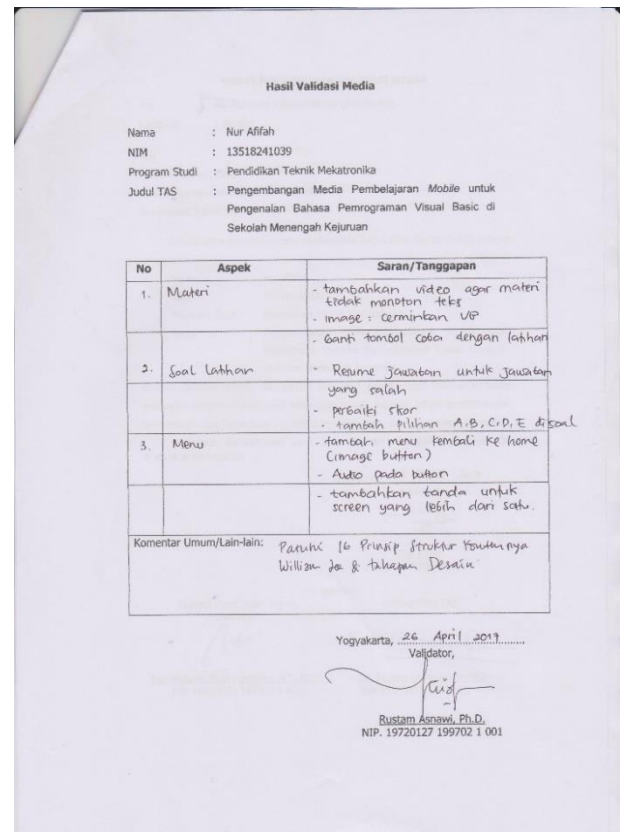 Hasil Validasi Media
Nama : Nur Afifah
NIM : 13518241039
Program Studi : Pendidikan Teknik Mekatronika
Judul TAS : Pengembangan Media Pembelajaran Mobile untuk
Pengenalan Bahasa Pemrograman Visual Basic di
Sekolah Menengah Kejuruan
No Aspek Saran/Tanggapan
1. Materi - tambahkan video agar materi
tidak monoton teks
- image : cerminkan VB
- Ganti tombol coba dengan latihan
2. Soal Latihan - Resume jawaban untuk jawaban
yang salah
- perbaiki skor
- tambah pilihan A,B,C,D,E di soal
3. Menu - tambah menu kembali ke home
(image button)
- Audio pada button
- tambahkan tanda untuk
screen yang lebih dari satu.
Komentar Umum/Lain-lain: 16 Prinsip Struktur
& tahapan Desain
Yogyakarta, 26 April 2019
Validator,
Rustam Asnawi, Ph.D.
NIP. 19720127 199702 1 001